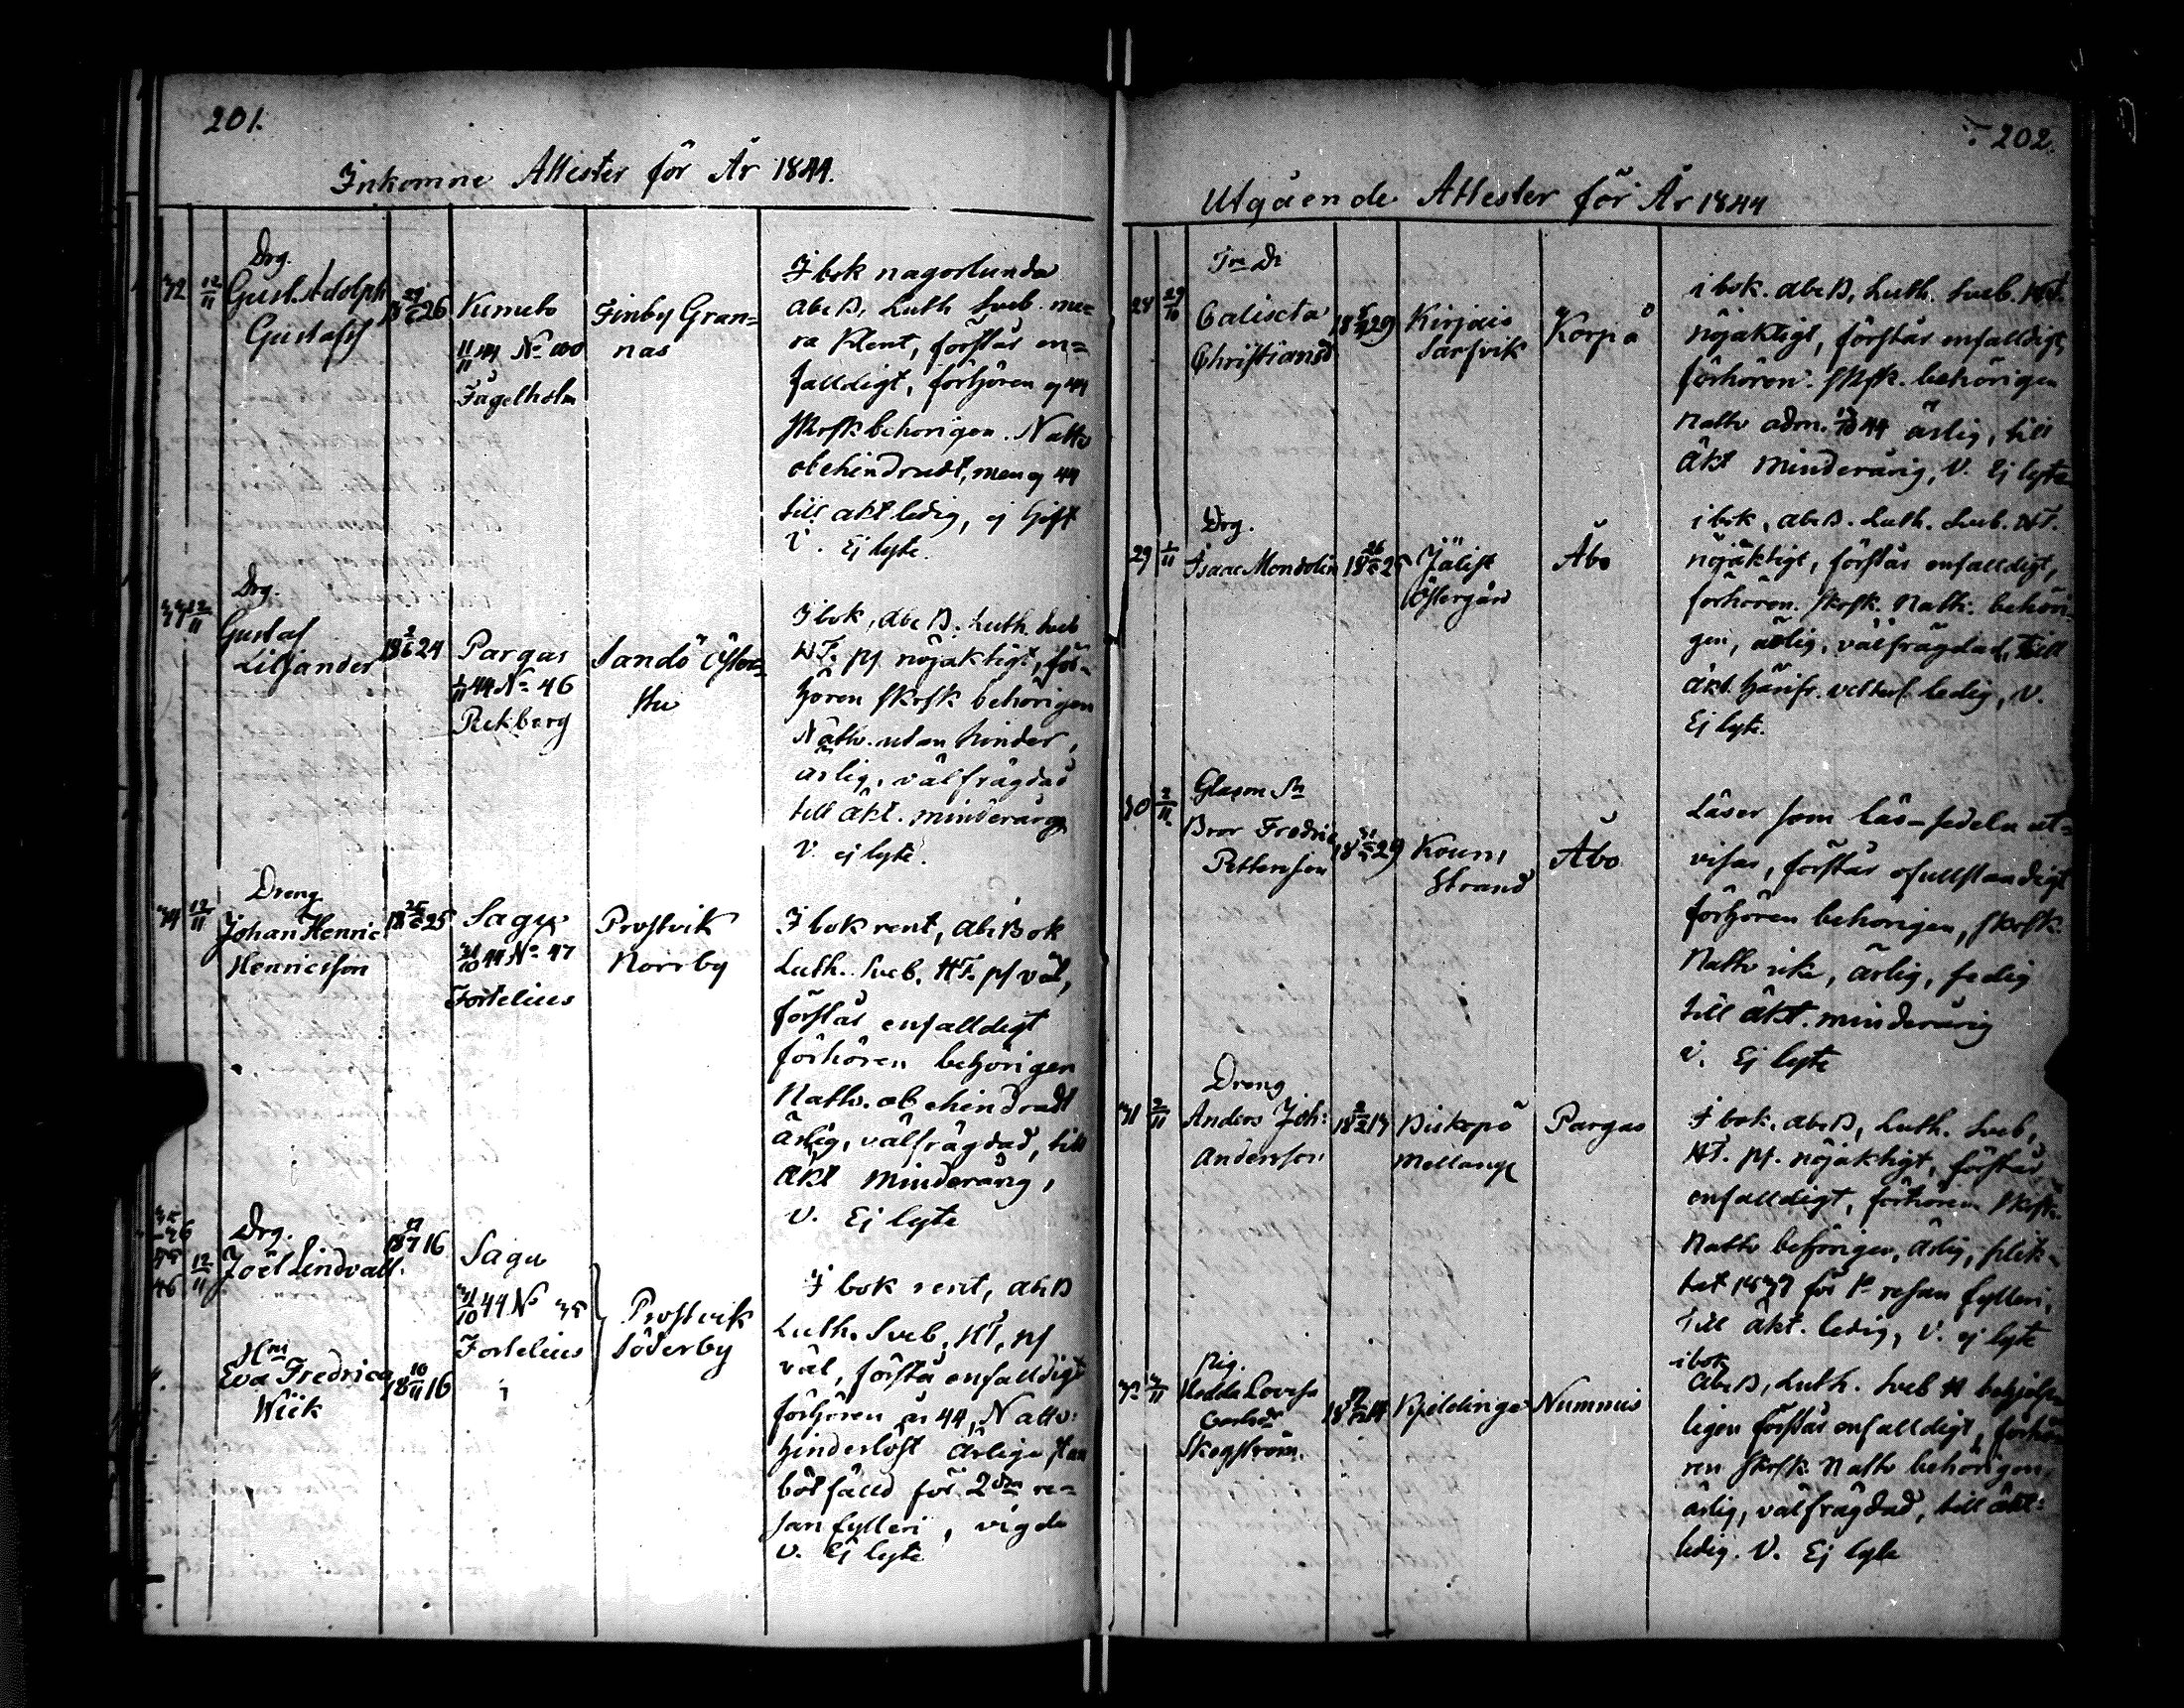 201.
Inkomne Attester för År 1844.
32 12/11 Drg. Gust. Adolph Gustafss
Kimito
11/11 44 No 100
Fagelholm
Finby Gran=
nas
I bok nagorlunda
abcB, Luth Sveb. me=
ra Klent, förstår en=
falldigt, förhören ej 44
Skrfk behorigen. Nattv
obehindradt, men ej 44
till äkt ledig, ej Gift
V. Ej lyte.
12/11 Drg.
Gustaf
Liljander
Pargas
1/11 44 No 46
Rekberg
Sandö Öster=
stu
I bok, abcB. Luth. Sveb
HT. ps nöjaktigt, för=
hören skrfk behörigen
Nattv. utan hinder,
ärlig, välfrägdad
till äkt. minderårig
V. ej lyte.
34 12/11 Dreng
Johan Henric
Henricsson
Sagu
31/10 44 No 47
Fortelius
Prostvik
Norrby
I bok rent, abcBok
Luth. Sveb. HT. ps väl,
förstår enfalldigt
förhören behörigen
Nattv. obehindradt
ärlig, välfrägdad, till
äkt minderårig,
V. Ej lyte
35
36
45
46 12/11 Drg.
Joël Lindvall.
Hni
Eva Fredrica
Wiik
18 10/11 16
Sagu
31/10 44 No 35
Fortelius
Prostvik
Söderby
I bok rent, abcB
Luth. Sveb, HT, ps
väl, förstå enfalldigt
förhören än 44, Nattv:
hinderlöst Ärlige Han
bötfälld för 2dra re=
san fylleri, vigde
V. Ej lyte
202.
Utgående Attester för År 1844
28 29/10
Calixta
Christiansd
Kirjais
Sarfvik
Korpo
i bok. abcB, Luth. Sveb. HT.
nöjaktigt, förstår enfalldigt,
förhören. skrfk. behörigen
Nattv adm. 13/10 44 ärlig, till
äkt minderårig, V. Ej lyte
29 1/11 Drg.
Isaac Mondolin
Jälist
Östergård
Åbo
i bok, abcB. Luth. Sveb. HT.
nöjaktigt, förstår enfalldigt,
förhören. Skrfk. Nattv. behöri=
gen, ärlig, välfrägdad, till
äkt. härifr. ledig, V.
Ej lyte.
30 2/11 Glasm Sn
Bror Fredric
Petterson
Kouni
Strand
Åbo
Läser som Läs-sedeln ut=
visar, förstår ofullstandigt
förhören behörigen, skrfk.
Nattv icke, ärlig, sedig
till äkt. minderårig
V. Ej lyte
31 2/11 Dreng
Anders Joh:
Andersson
Biskopö
Mellang
Pargas
I bok. abcB, Luth. Sveb,
HT. ps. nöjaktigt, förstår
enfalldigt, förhören Skrfk.
Nattv behörigen, ärlig, plik=
tat 1837 för 1a resan fylleri,
till äkt. ledig, V. ej lyte
32 3/11 Pig.
Hedda Lovisa
Carlsdr
Skogström.
Kjeldinge
Nummis
i bok
abcB, Luth. Sveb H behjelpe=
ligen förstår enfalldigt, förhö=
ren Skrfk Nattv behörigen,
ärlig, välfrägdad, till äkt:
ledig. V. Ej lyte